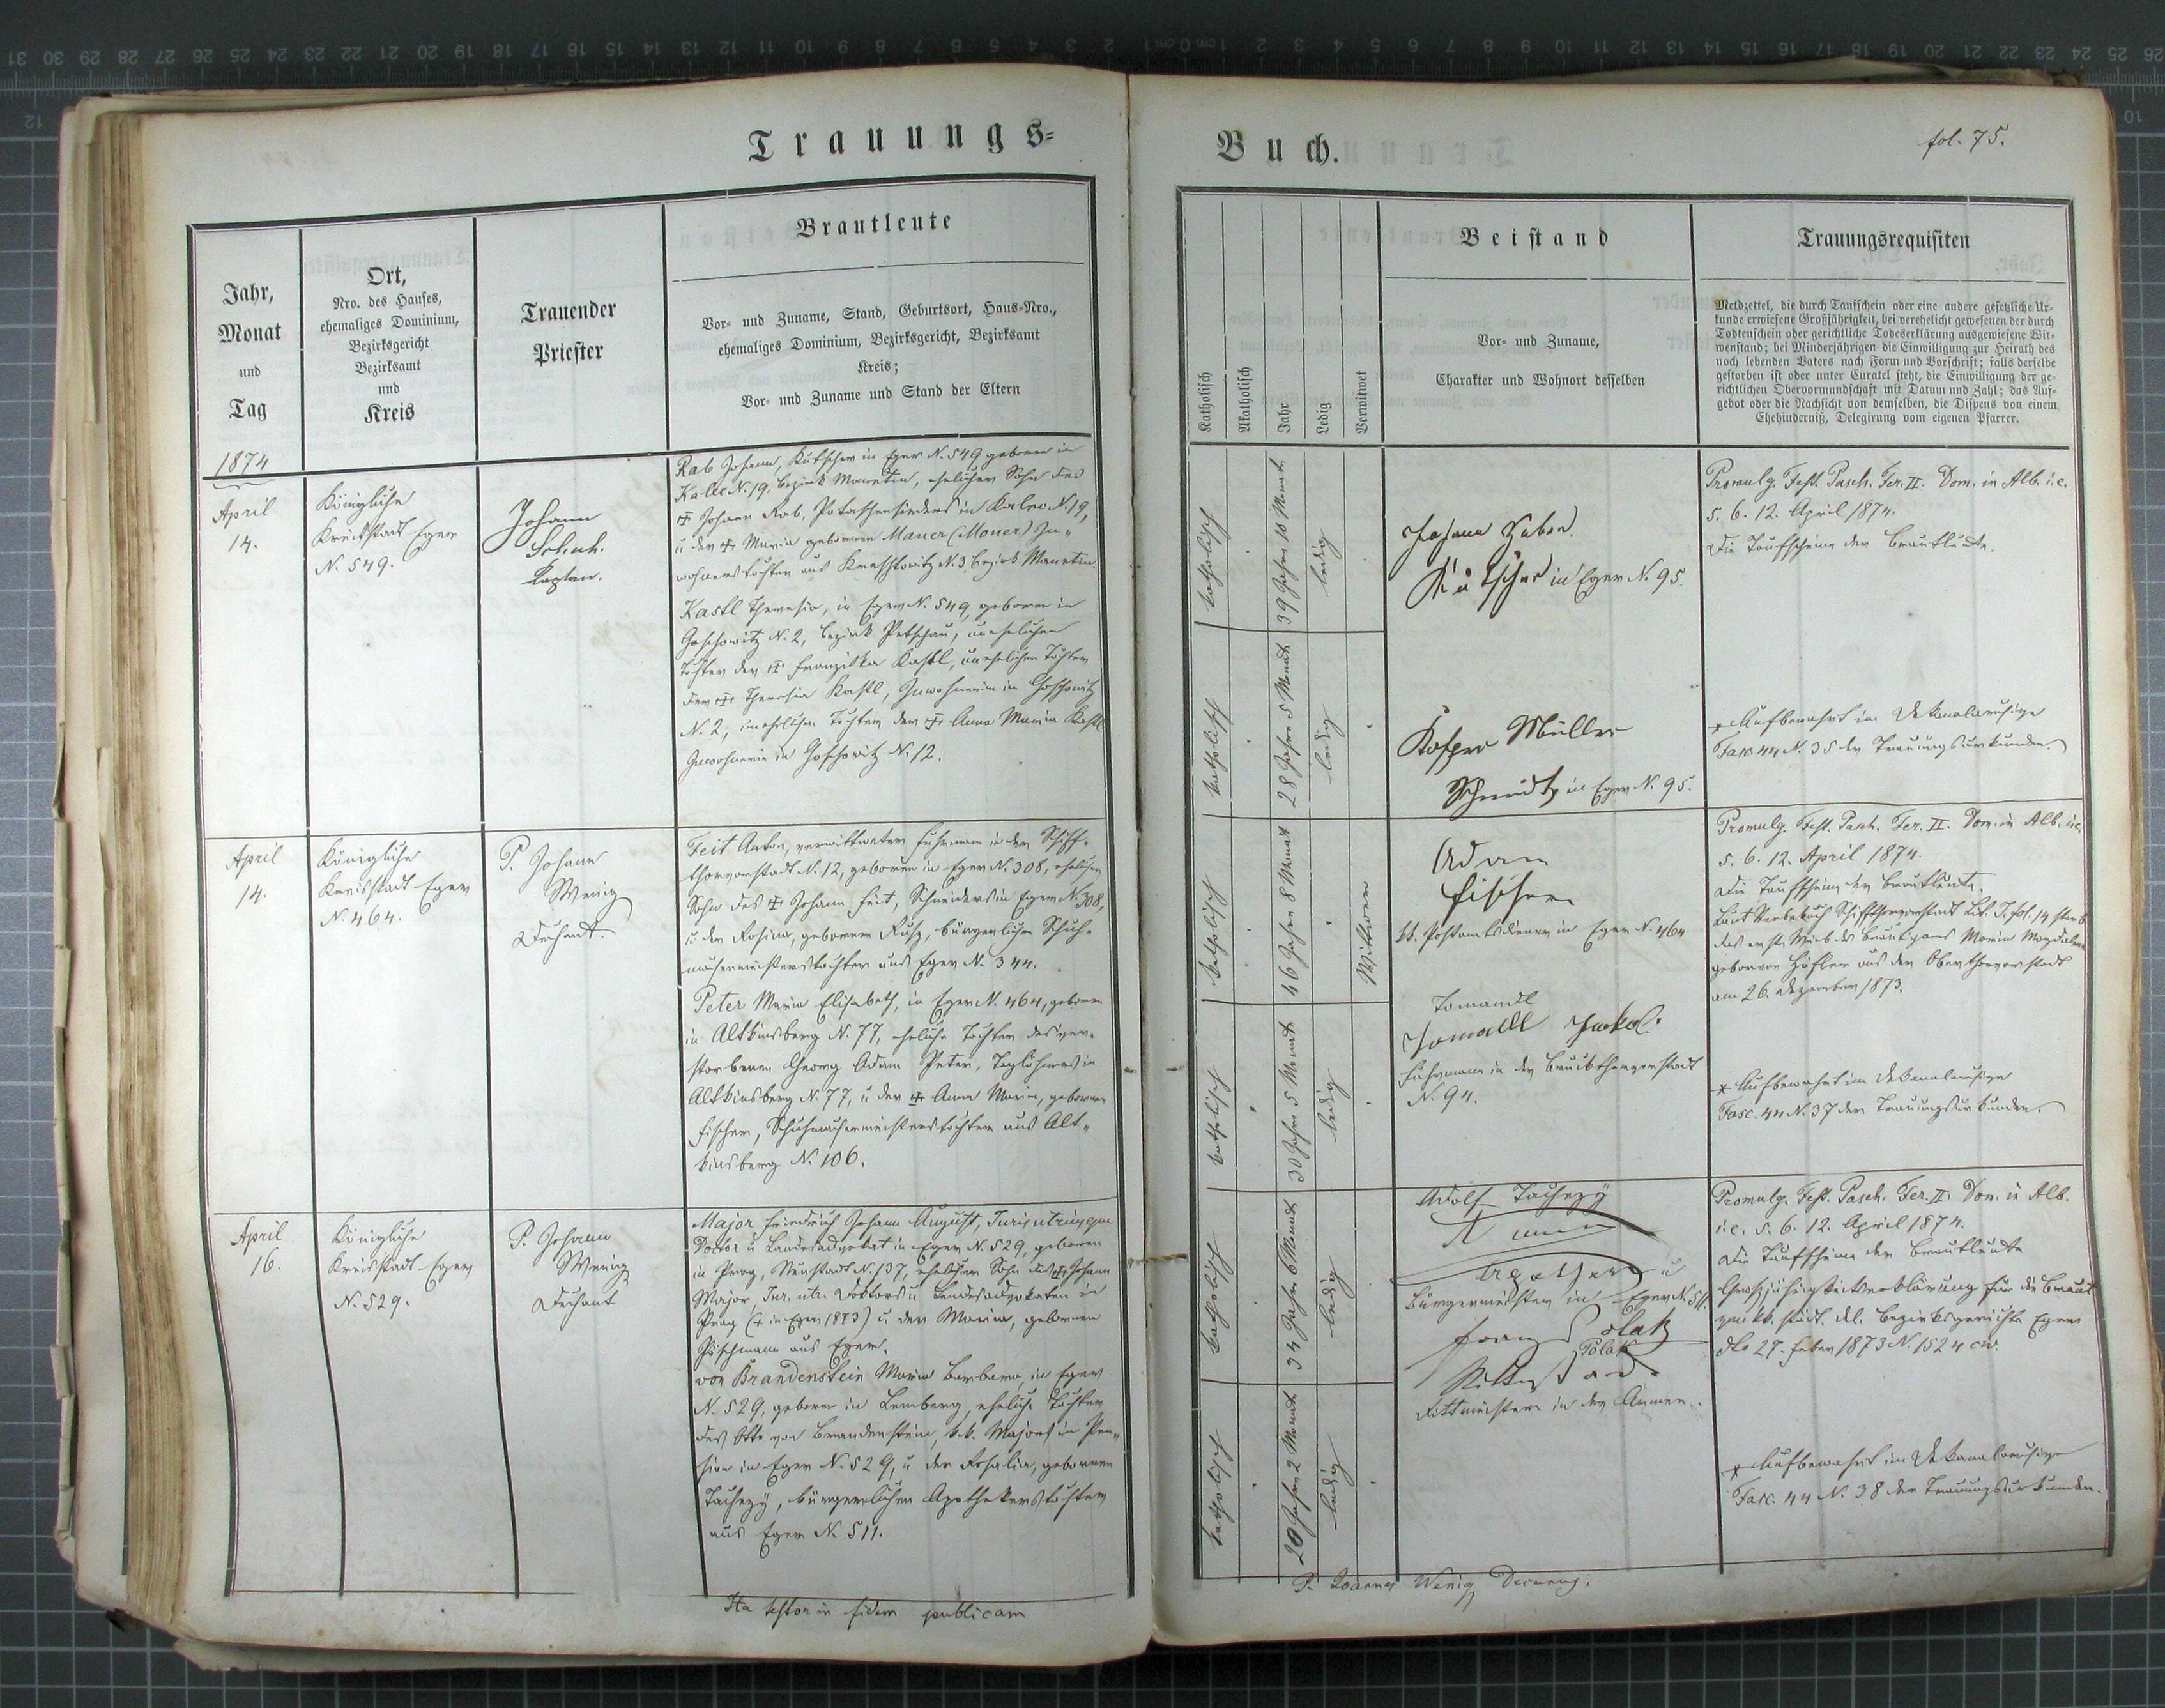 Trauungs-
Jahr,
Monat
und
Tag
Ort,
Nro. des Hauses,
ehemaliges Dominium,
Bezirksgericht
Bezirksamt
und
Kreis
Trauender
Priester
Brautleute
Vor- und Zuname, Stand, Geburtsort, Haus-Nro.,
ehemaliges Dominium, Bezirksgericht, Bezirksamt
Kreis;
Vor- und Zuname und Stand der Eltern
1874
April
14.
Königliche
Kreisstadt Eger
N. 549.
Johann
Schuh.
Kaplan.
Rab Johann, Kutscher in Eger N. 549 geboren in
Kalec N. 19, Bezirk Manetin, ehelicher Sohn des
✠ Johann Rab, Potaschensieders in Kalec N. 19,
u der ✠ Maria geborenen Mauer (Mouer) In-
wohnerstochter aus N. 3, Bezirk Manetin.
Kastl Theresia, in Eger N. 549, geboren in
Goschowitz N. 2, Bezirk Petschau, uneheliche
Tochter der ✠ Franziska Kastl, unehelichen Tochter
der ✠ Theresia Kastl, Inwohnerin in Goschowitz
N. 2, unehelichen Tochter der ✠ Anna Maria Kastl
Inwohnerin in Goschowitz N. 12.
April
14.
Königliche
Kreisstadt Eger
N. 464.
P. Johann
Wenig
Dechant.
Feit Anton, verwittweter Fuhrmann in der Schiff-
thorvorstadt N. 12, geboren in Eger N. 308, ehelicher
Sohn des ✠ Johann Feit, Schneiders in Eger N. 308,
u der Rosina, geborenen Rusz, bürgerlichen Schuh-
machermeisterstochter aus Eger N. 344.
Peter Maria Elisabeth, in Eger N. 464, geboren
in Altkinsberg N. 77, eheliche Tochter des ver-
storbenen Georg Adam Peter, Taglöhners in
Altkinsberg N. 77, u der ✠ Anna Maria, geborenen
Fischer, Schuhmachermeisterstochter aus Alt-
kinsberg N. 106.
April
16.
Königliche
Kreisstadt Eger
N. 529.
P. Johann
Wenig
Dechant
Major Friedrich Johann August, Juris utriusque
Doctor u Landesadvokat in Eger N. 529, geboren
in Prag, Neustadt N. 137, ehelicher Sohn des ✠ Johann
Major, Jur. utr. Doktors u Landesadvokaten in
Prag (✠ in Eger 1873) u der Maria, geborenen
Pöschmann aus Eger.
von Brandenstein Maria Barbara, in Eger
N. 529, geboren in Lemberg, eheliche Tochter
des Otto von Brandenstein, k.k. Majors in Pen-
sion in Eger N. 529, u der Rosalia, geborenen
Tachezÿ, bürgerlichen Apothekerstochter
aus Eger N. 511.
Ita testor in fidem publicam
Buch.
fol. 75.
Katholisch
Akatholisch
Jahr
Ledig
Verwitwet
Beistand
Vor- und Zuname,
Charakter und Wohnort desselben
Trauungsrequisiten
Meldzettel, die durch Taufschein oder eine andere gesetzliche Ur-
kunde erwiesene Großjährigkeit, bei verehelicht gewesenen der durch
Todtenschein oder gerichtliche Todeserklärung ausgewiesene Wit-
wenstand; bei Minderjährigen die Einwilligung zur Heirath des
noch lebenden Vaters nach Form und Vorschrift; falls derselbe
gestorben ist oder unter Curatel steht, die Einwilligung der ge-
richtlichen Obervormundschaft mit Datum und Zahl; das Auf-
gebot oder die Nachsicht von demselben, die Dispens von einem
Ehehinderniß, Delegirung vom eigenen Pfarrer.
katholisch
39 Jahre 10 Monat
ledig
Johann Haben
Kutscher in Eger N. 95.
Promulg. Fest. Pasch. Fer. II. Dom. in Alb. i.e.
5. 6. 12. April 1874.
Die Taufscheine der Brautleute.
katholisch
28 Jahre 5 Monat
ledig
Kaspar Müller
Schmidt in Eger N. 95.
* Aufbewahrt im Dekanalarchive
Fasc. 44 N. 35 der Trauungsurkunden.
katholisch
46 Jahre 8 Monat
Wittwer
Adam
Fischer
kk. Postamtsdiener in Eger N. 464
Promulg. Fest. Pasch. Fer. II. Dom. in Alb. i.e.
5. 6. 12. April 1874.
Die Taufscheine der Brautleute.
Laut Sterbebuch Schiffthorvorstadt Lit. J. fol. 14 starb
das erste Weib des Bräutigams Maria Magdalena
geborene Höfler aus der Oberthorvorstadt
am 26. Dezember 1873.
katholisch
30 Jahre 5 Monat
ledig
Tomandl
Jomalll Jackol.
Fuhrmann in der Bruckthorvorstadt
N. 94.
* Aufbewahrt im Dekanalarchive
Fasc. 44 N. 37 der Trauungsurkunden.
katholisch
34 Jahre 6 Monat
ledig
Adolf Tachezÿ
Apotheker u
Bürgermeister in Eger N. 511.
Promulg. Fest. Pasch. Fer. II. Dom. in Alb.
i.e. 5. 6. 12. April 1874.
Die Taufscheine der Brautleute
Großjährigkeitserklärung für die Braut
vom kk. städt. del. Bezirksgerichte Eger
dto 27. Feber 1873 N. 1524 civ.
katholisch
20 Jahre 2 Monat
ledig
Franz Polak
Polak
Rittmeister in der Armee.
* Aufbewahrt im Dekanalarchive
Fasc. 44 N. 38 der Trauungsurkunden.
P. Joannes Wenig Decanus.